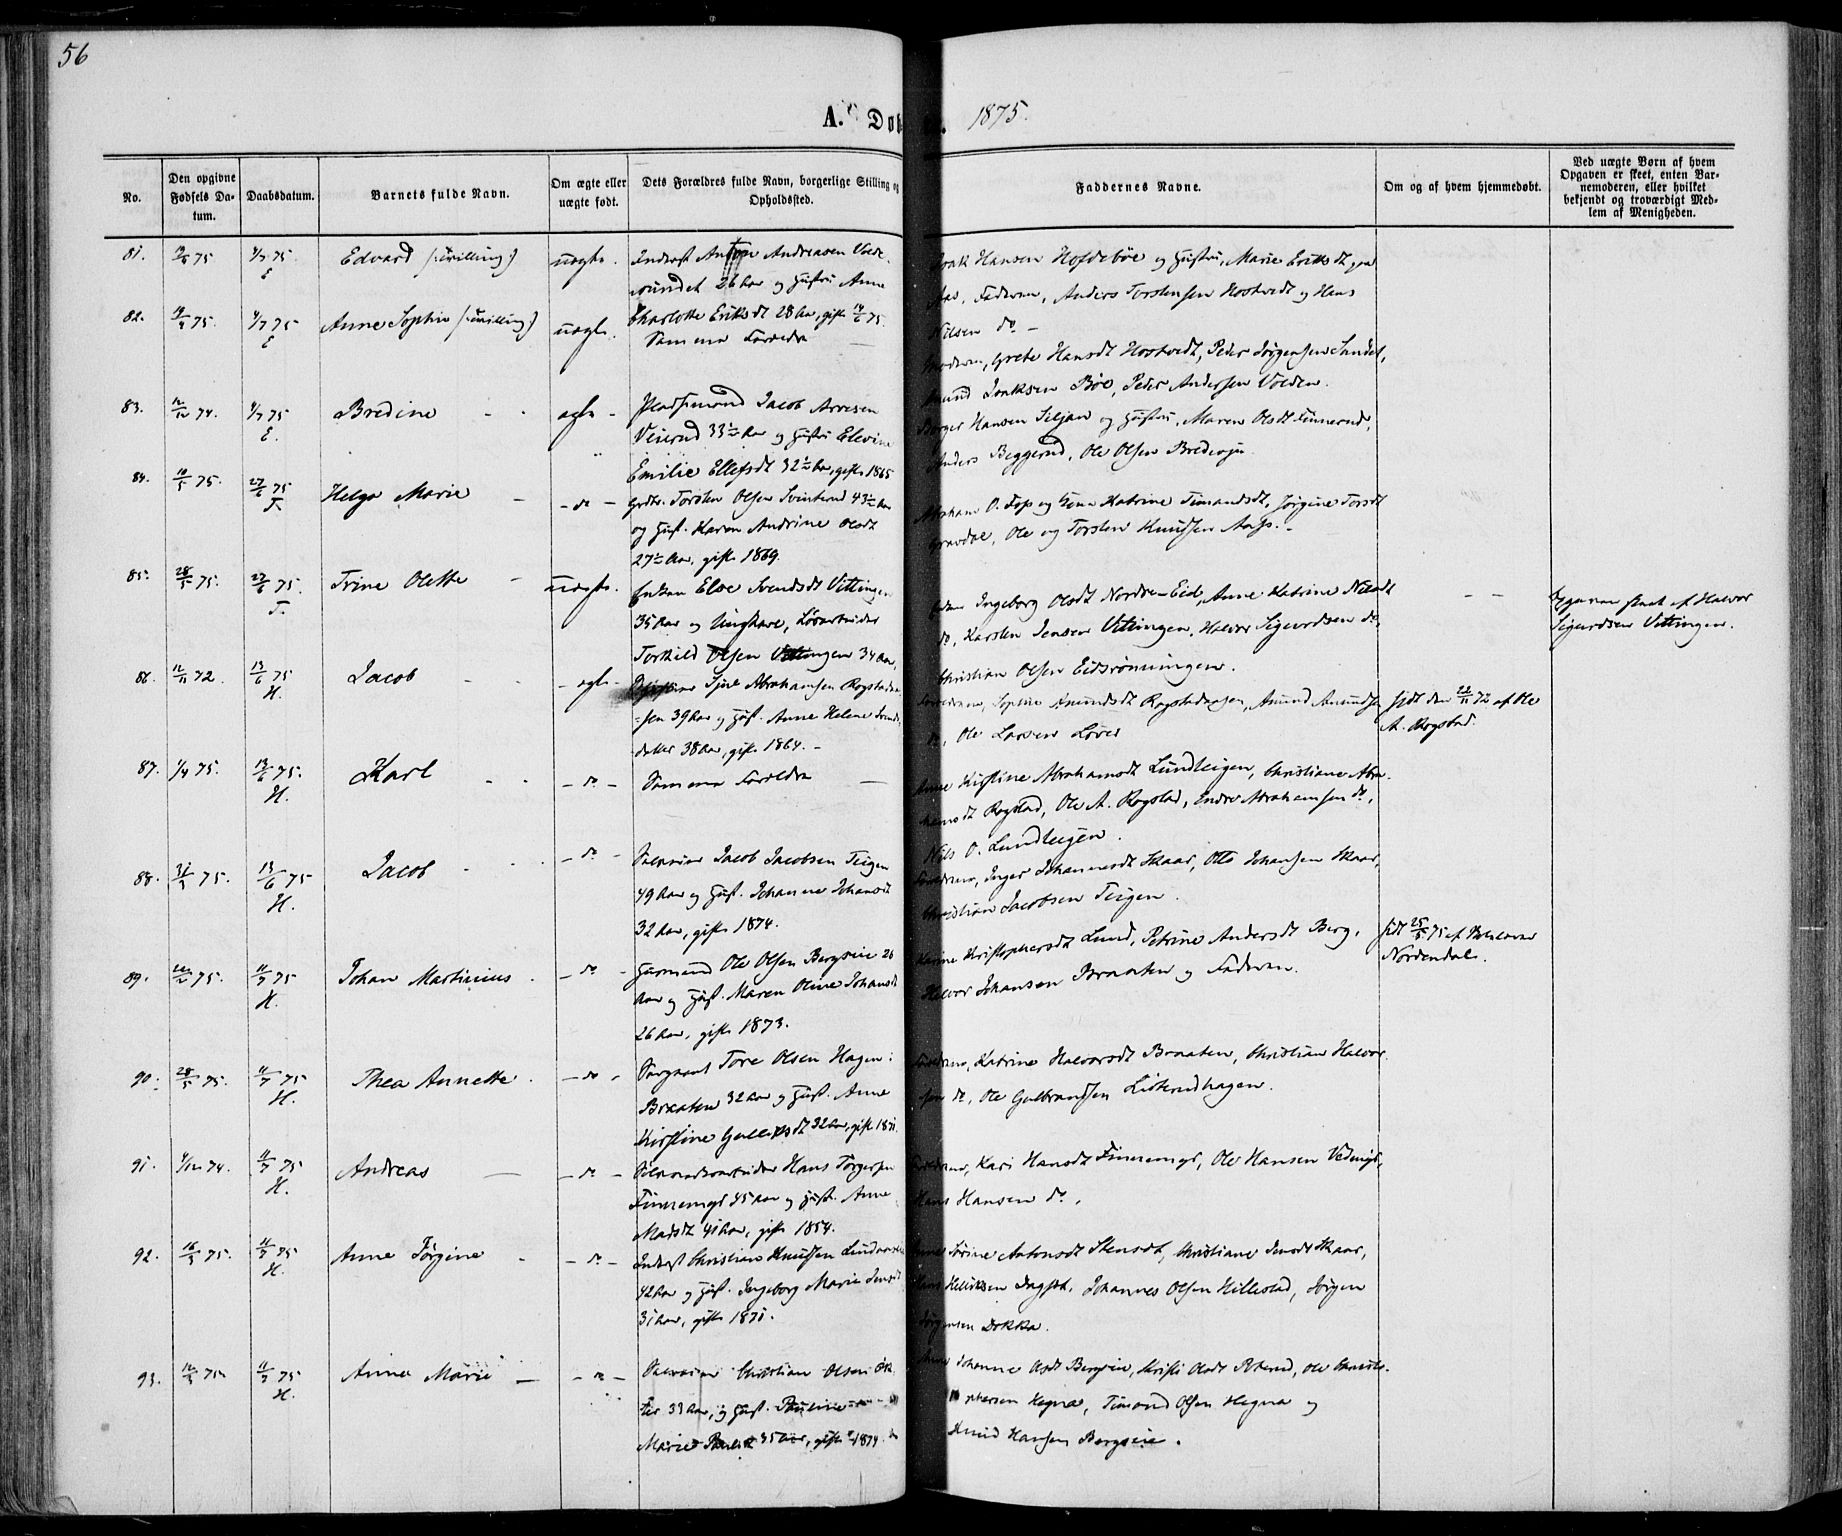 56
A. Døbte. 1875.
No.
Den opgivne Fødsels Datum.
Daabsdatum.
Barnets fulde Navn.
Om ægte eller uægte født.
Dets Forældres fulde Navn, borgerlige Stilling og Opholdssted.
Faddernes Navne.
Om og af hvem hjemmedøbt.
Ved uægte Børn af hvem Opgaven er skeet, enten Barnemoderen, eller hvilket bekjendt og troværdigt Medlem af Menigheden.
81. 75 4/7 75 E Edvard (: tvilling :) uægte. Inderst Anton Andreasen Volde-
rundet 26 Aar og Hustru Anne
Charlotte Eriksdt 28 Aar, gift 75.
Isak Hansen Hofdebøe og Hustru, Marie Eriksdt
Faderen, Anders Torstensen Hostvedt og Hans
Nilsen do -
82. 75. 4/7 75 E Anne Sophie (: tvilling :) uægte.
Samme Forældre
Moderen, Grete Hansdt Hostvedt, Peder Jørgensen
Isaksen Bøe, Peder Andersen Volden.
83. 12/12 74. 4/7 75 E. Bredine - - ægte - Pladsmand Jacob Arvesen
Veierud 33½ Aar og Hustru Elevine
Emilie Ellefsdt 32½ Aar, gift 1865
Borger Hansen Seljan og Hustru, Maren Olsdt Finnerud,
Anders Beggerud, Ole Olsen
84. 10/5 75. 27/6 75 F. Helga Marie - - do - Grdbr. Torsten Olsen Svinterud 43½ Aar
og Hust. Karen Andrine Olsdt
27½ Aar, gift 1869.
Abraham O. Fop og Kone Katrine Simansdt, Jørgine Torsdt
Gravdal, Ole og Torsten Knudsen Aas. -
85. 28/5 75. 27/6 75 F. Trine Olette - uægte. Enken Else Svendsdt Vittingen
35 Aar og Ungkarl, Løsarbeider
Torkild Olsen Vittingen 34 Aar,
Ingeborg Olsdt Nordre-Eid, Anne Katrine Nilsdt
do, Karsten Jensen Vittingen, Halvor Sigurdsen do,
Christian Olsen Eidsrønningen.
- -
Opgaven skeet af Halvor
Sigurdsen Vittingen.
86. 12/11 72. 13/6 75 H. Jacob - - - ægte - Abrahamsen Rogstadaa-
sen 39 Aar og Hust. Anne Helene Svends-
datter 38 Aar, gift 1864. -
Forældrene, Sophie Amundsdt Rogstadaasen, Amund Amundsen
do, Ole Larsen Løver
født den 22/11 72 af Ole
A. Rogstad.
87. 1/4 75. 13/6 75. H. Karl - - - do - Samme Forældre
Anne Kirstine Abrahamsdt Lundteigen, Christiane Abra-
hamsdt Rogstad, Ole A. Rogstad, Endre Abrahamsen do,
Nils O. Lundteigen.
88. 31/3 75. 13/6 75 H. Jacob - - - do - Selveier Jacob Jacobsen Teigen
49 Aar og Hust. Johanne Johansdt
32 Aar, gift 1874.
Forældrene, Inger Johannesdt Skaar, Otto Johansen Skaar,
Christian Jacobsen Teigen.
89. 75. 11/7 75 H. Johan Martinius. - do - Husmand Ole Olsen Bergseie 26
Aar og Hust. Maren Oline Johansdt
26 Aar, gift 1873.
Karine Kristophersdt Lund, Petrine Andersdt Berg,
Halvor Johansen Braaten og Faderen.
født 25/5 75 af
Nordendale.
90. 28/5 75. 11/7 75 H. Thea Annette. - do - Sergeant Tore Olsen Hagen:
Braaten 32 Aar og Hust. Anne
Kirstine Gulliksdt 32 Aar, gift 1871.
Forældrene, Katrine Halvorsdt Braaten, Christian Halvor-
sen do, Ole Gulbrandsen Listerudhagen.
91. 4/12 74. 11/7 75 H. Andreas - do - Hans Torgersen
Finnemyr 45 Aar og Hust. Anne
Madsdt 41 Aar, gift 1854.
Forældrene, Kari Hansdt Finnemyr, Ole Hansen Vedmyr,
Hans Hansen do.
92. 16/3 75. 11/7 75 H. Anne Jørgine - - do - Inderst Christian Knudsen
42 Aar og Hust. Ingeborg Marie Jensdt
31 Aar, gift 1871.
Anne Sørine Antonsdt Stensdt, Christiane Jensdt Skaar,
Johannes Olsen Hillestad, Jørgen
Jørgensen Dokka.
93. 75 11/7 75 H. Anne Marie - - do - Selveier Christian Olsen
33 Aar, og Hust. Pauline
Marie 35 Aar, gift 1874.
Anne Johanne Olsdt Bergseie, Kirsti Olsdt Ole
Hegna, Simond Olsen Hegna og
Knud Hansen Bergseie.